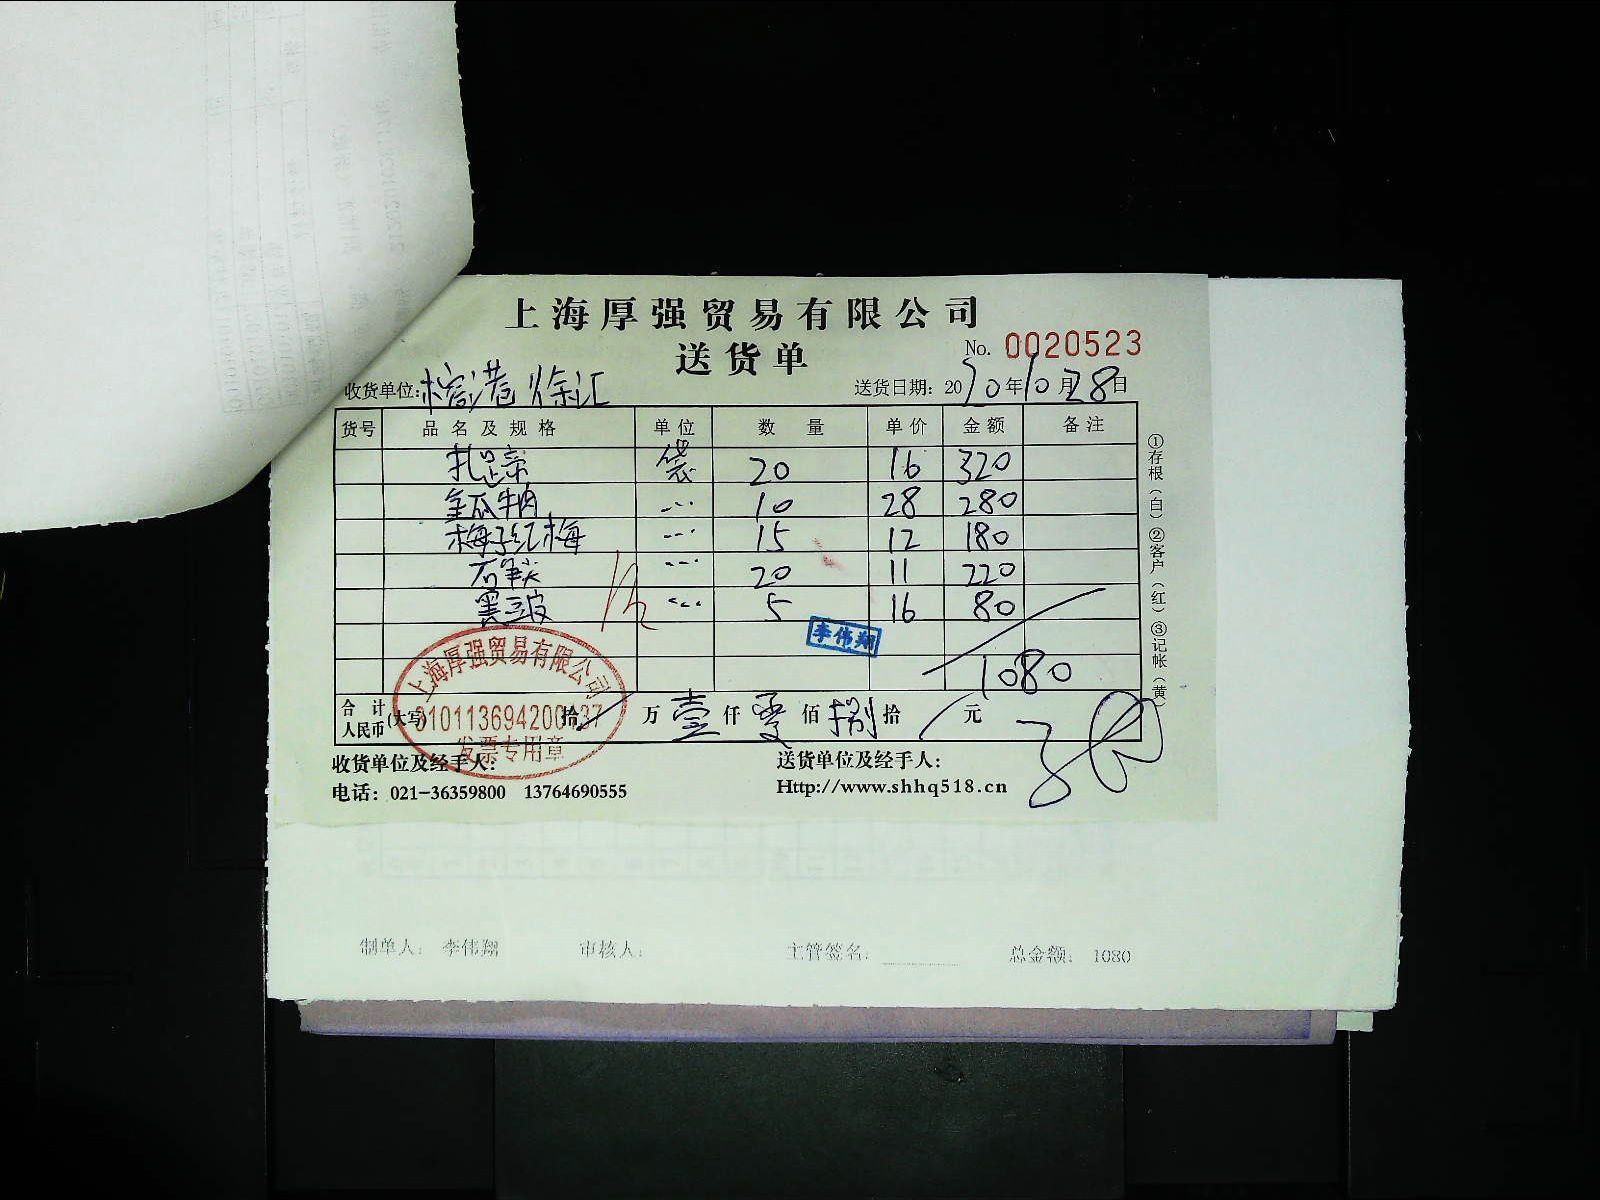 上海厚强贸易有限公司
No. 0020523
送货单
收货单位: 榕港 徐汇 送货日期: 2020年10月28日
货号 品名及规格 单位 数量 单价 金额 备注
扎蹄 袋 20 16 320
金瓜牛肉 〃 10 28 280
梅子红梅 〃 15 12 180
石 〃 20 11 220
黑 〃 5 16 80
李伟翔
1080
合计人民币(大写) 拾 万 壹 仟 零 佰 捌 拾 元
上海厚强贸易有限公司
发票专用章
收货单位及经手人: 送货单位及经手人:
电话: 021-36359800 13764690555 Http://www.shhq518.cn
①存根(白) ②客户(红) ③记帐(黄)
制单人: 李伟翔 审核人: 主管签名: 总金额: 1080